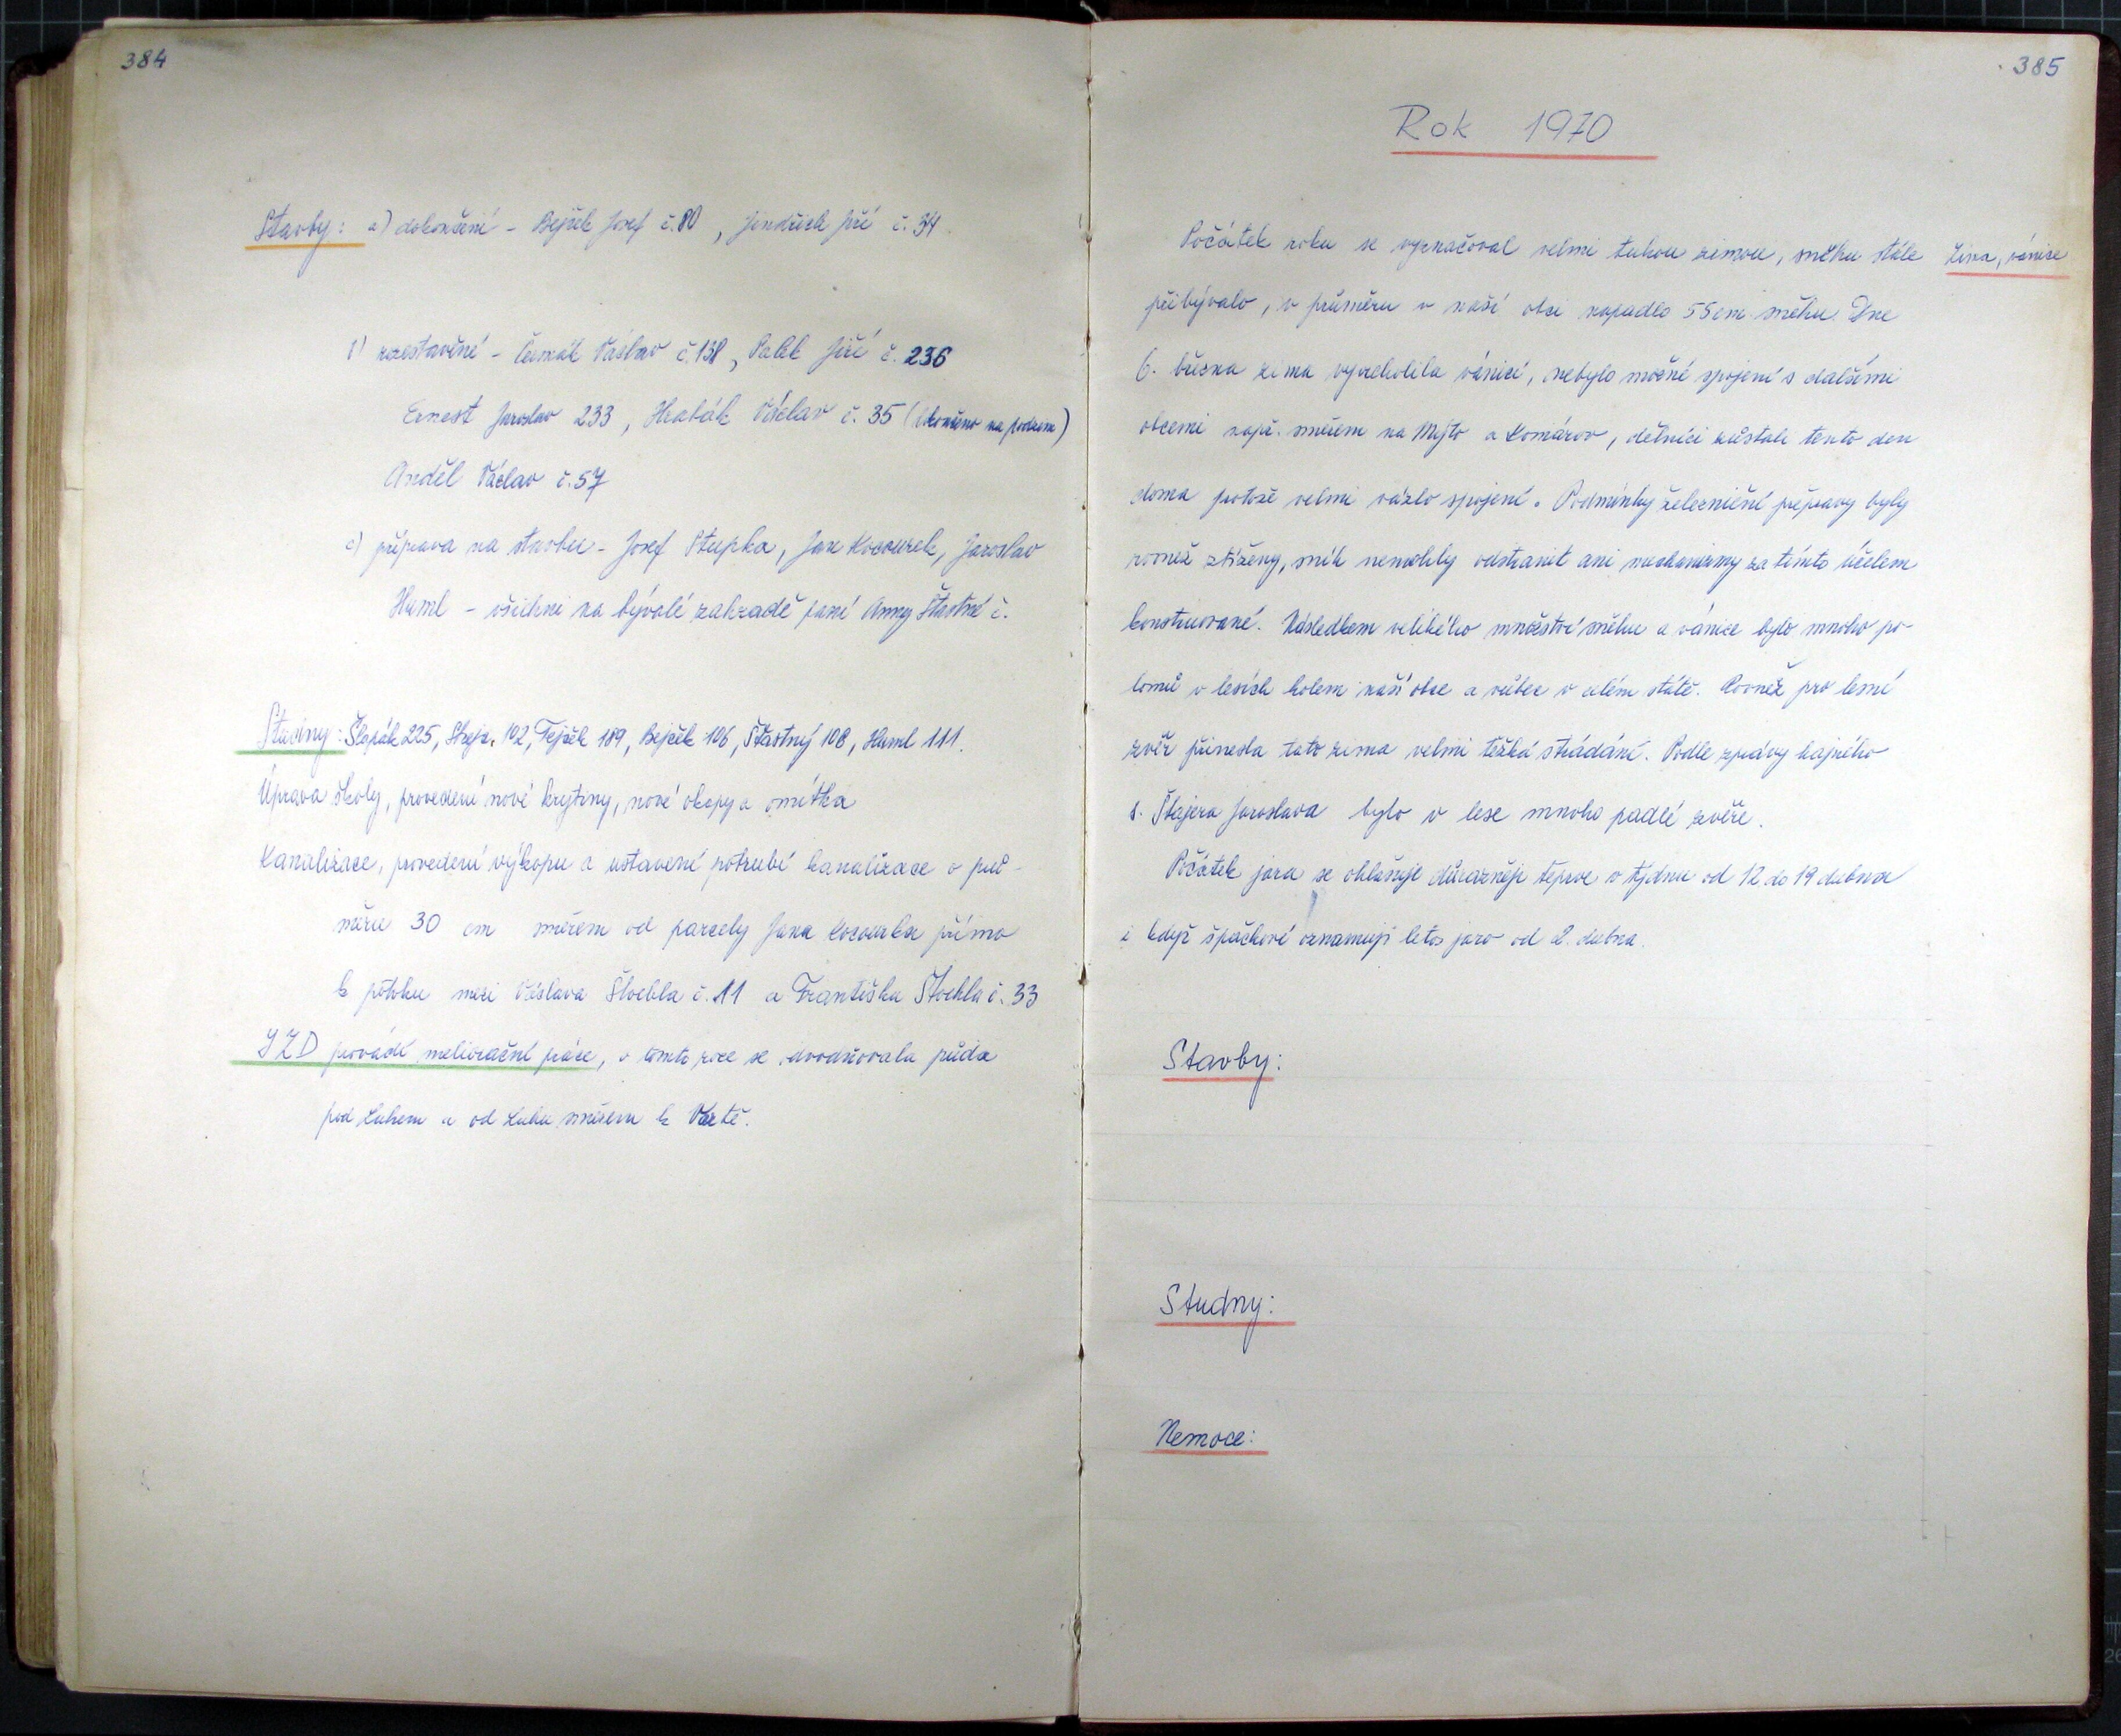 384
Stavby: a) dokončené - Bejček Josef č. 80, Jindřich Jiří č. 34
b) rozestavěné - Čermák Václav č. 138, Palek Jiří č. 236
Ernest Jaroslav 233, Hrabák Václav č. 35 (Ukončeno na podzim)
Anděl Václav č. 57
c) příprava na stavbu - Josef Stupka, Jan Kocourek, Jaroslav
Huml - všichni na bývalé zahradě paní Anny Šťastné č.
Studny: Šlapák 225, 102, Fejček 189, Bejček 106, Šťastný 108, Huml 111.
Úprava školy, provedení nové krytiny, nové okapy a omítka
Kanalizace, provedení výkopu a ustavení potrubí kanalizace o prů-
měru 30 cm směrem od parcely Jana Kocourka přímo
k potoku mezi Václava Štochla č. 11 a Františka Štochla č. 33
JZD provádí meliorační práce, v tomto roce se odvodňovala půda
pod Luhem a od Luhu směrem k Vartě.
385
Rok 1970
Zima, vánice
Počátek roku se vyznačoval velmi tuhou zimou, sněhu stále
přibývalo, v průměru v naší obci napadlo 55 cm sněhu. Dne
6. března zima vyvrcholila vánicí, nebylo možné spojení s dalšími
obcemi např. směrem na Mýto a Komárov, dělníci zůstali tento den
doma protože velmi vázlo spojení. Podmínky železniční přepravy byly
rovněž ztíženy, sníh nemohly odstranit ani mechanizmy za tímto účelem
konstruované. Následkem velikého množství sněhu a vánice bylo mnoho po-
lomů v lesích kolem naší obce a vůbec v celém státě. Rovněž pro lesní
zvěř přinesla tato zima velmi těžká strádání. Podle zprávy hajného
s. Štajera Jaroslava bylo v lese mnoho padlé zvěře.
Počátek jara se ohlašuje důrazněji teprve v týdnu od 12 do 19 dubna
i když špačkové oznamují letos jaro od 2. dubna.
Stavby:
Studny:
Nemoce: